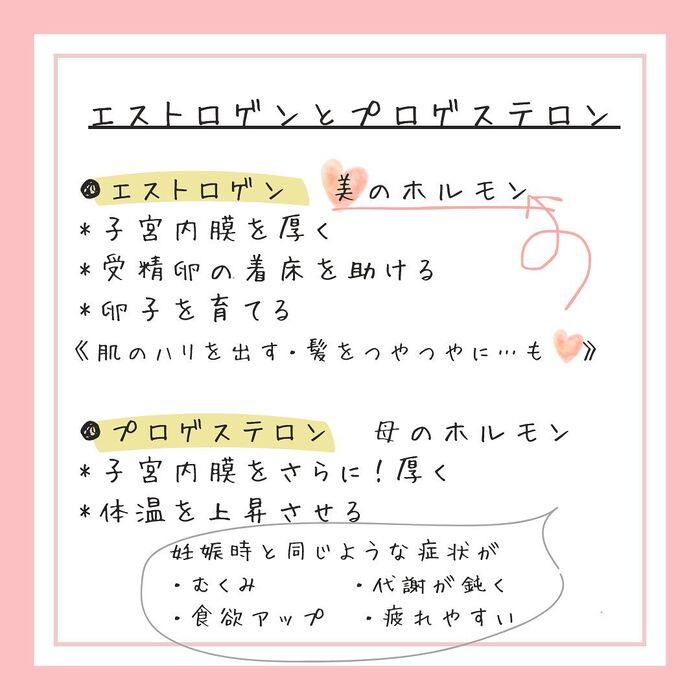 エストロゲンとプロゲステロン
●エストロゲン 美のホルモン
*子宮内膜を厚く
*受精卵の着床を助ける
*卵子を育てる
《肌のハリを出す・髪をつやつやに…も》
●プロゲステロン 母のホルモン
*子宮内膜をさらに！厚く
*体温を上昇させる
妊娠時と同じような症状が
・むくみ ・代謝が鈍く
・食欲アップ ・疲れやすい